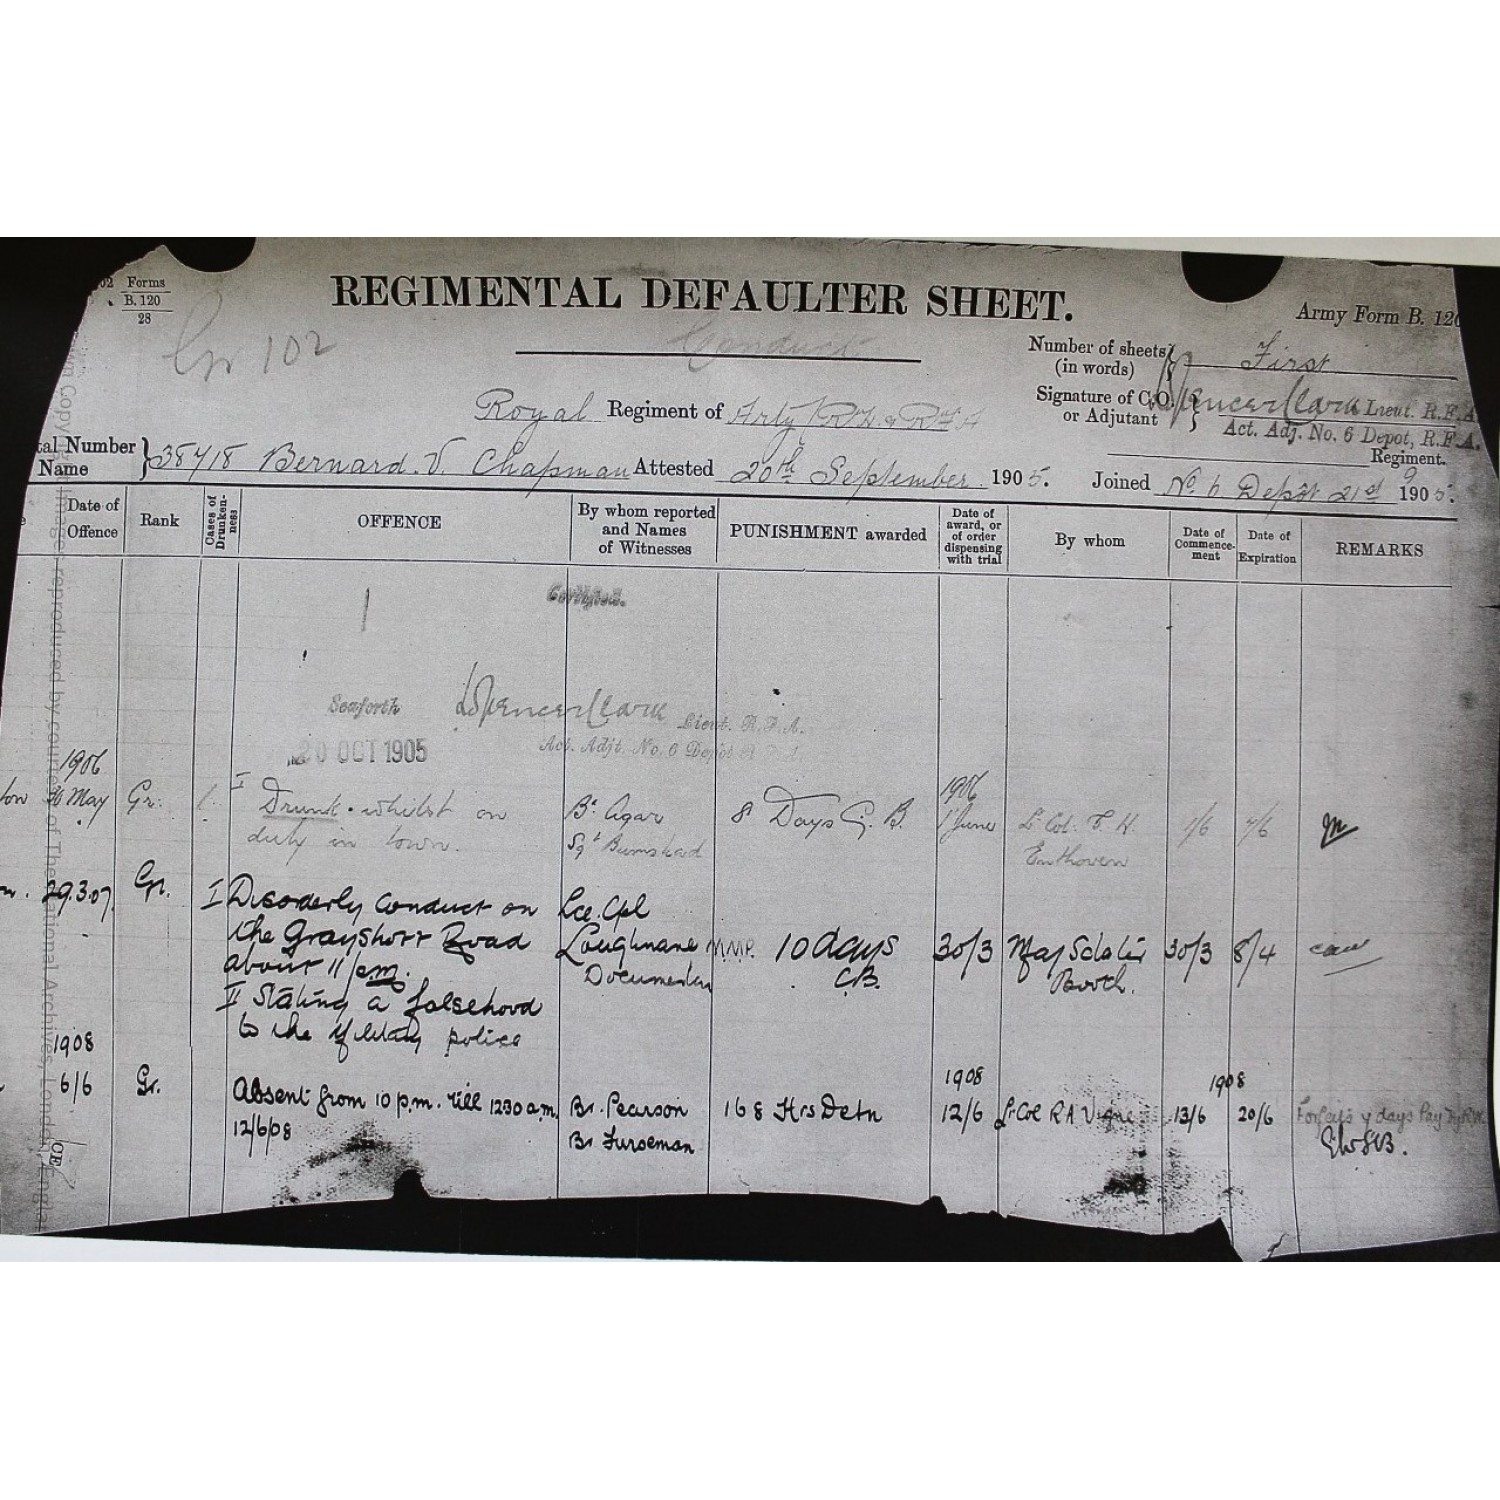 Forms
B. 120
28
REGIMENTAL DEFAULTER SHEET.
Army Form B. 120
Gr 102
Conduct
Number of sheets
(in words)
First
Signature of C.O.
or Adjutant
Spencer Clark Lieut. R.F.A.
Act. Adj. No. 6 Depot, R.F.A.
Royal Regiment of Arty RH & RFA
Regiment.
al Number
Name
38418 Bernard. V. Chapman Attested 20th September 1905. Joined No. 6 Depôt 21st 9 1905.
Date of
Offence
Rank
Cases of
Drunken-
ness
OFFENCE
By whom reported
and Names
of Witnesses
PUNISHMENT awarded
Date of
award, or
of order
dispensing
with trial
By whom
Date of
Commence-
ment
Date of
Expiration
REMARKS
Certified.
Seaforth
Spencer Clark Lieut. R.F.A.
20 OCT 1905
Act. Adjt. No. 6 Depot R.F.A.
1906
May Gr. 1 I Drunk whilst on
duty in town.
Br Agar
Sgt Bumstead
8 Days C. B.
1906
1 June
Lt Col. F. H.
Enthoven
1/6 7/6
29.3.07. Gr. I Disorderly conduct on
the Grayshott Road
about 11 p.m.
II Stating a falsehood
to the Military police
Lce. Cpl
Loughnane M.M.P.
Documentary
10 days
C.B.
30/3
Maj Sclater
Booth.
30/3 8/4
1908
6/6 Gr. Absent from 10 p.m. till 12.30 a.m.
12/6/08
Br. Pearson
Br Furseman
168 Hrs Detn
1908
12/6 Lt Col R A Vigne
1908
13/6 20/6 Forfeits 7 days Pay by R.W.